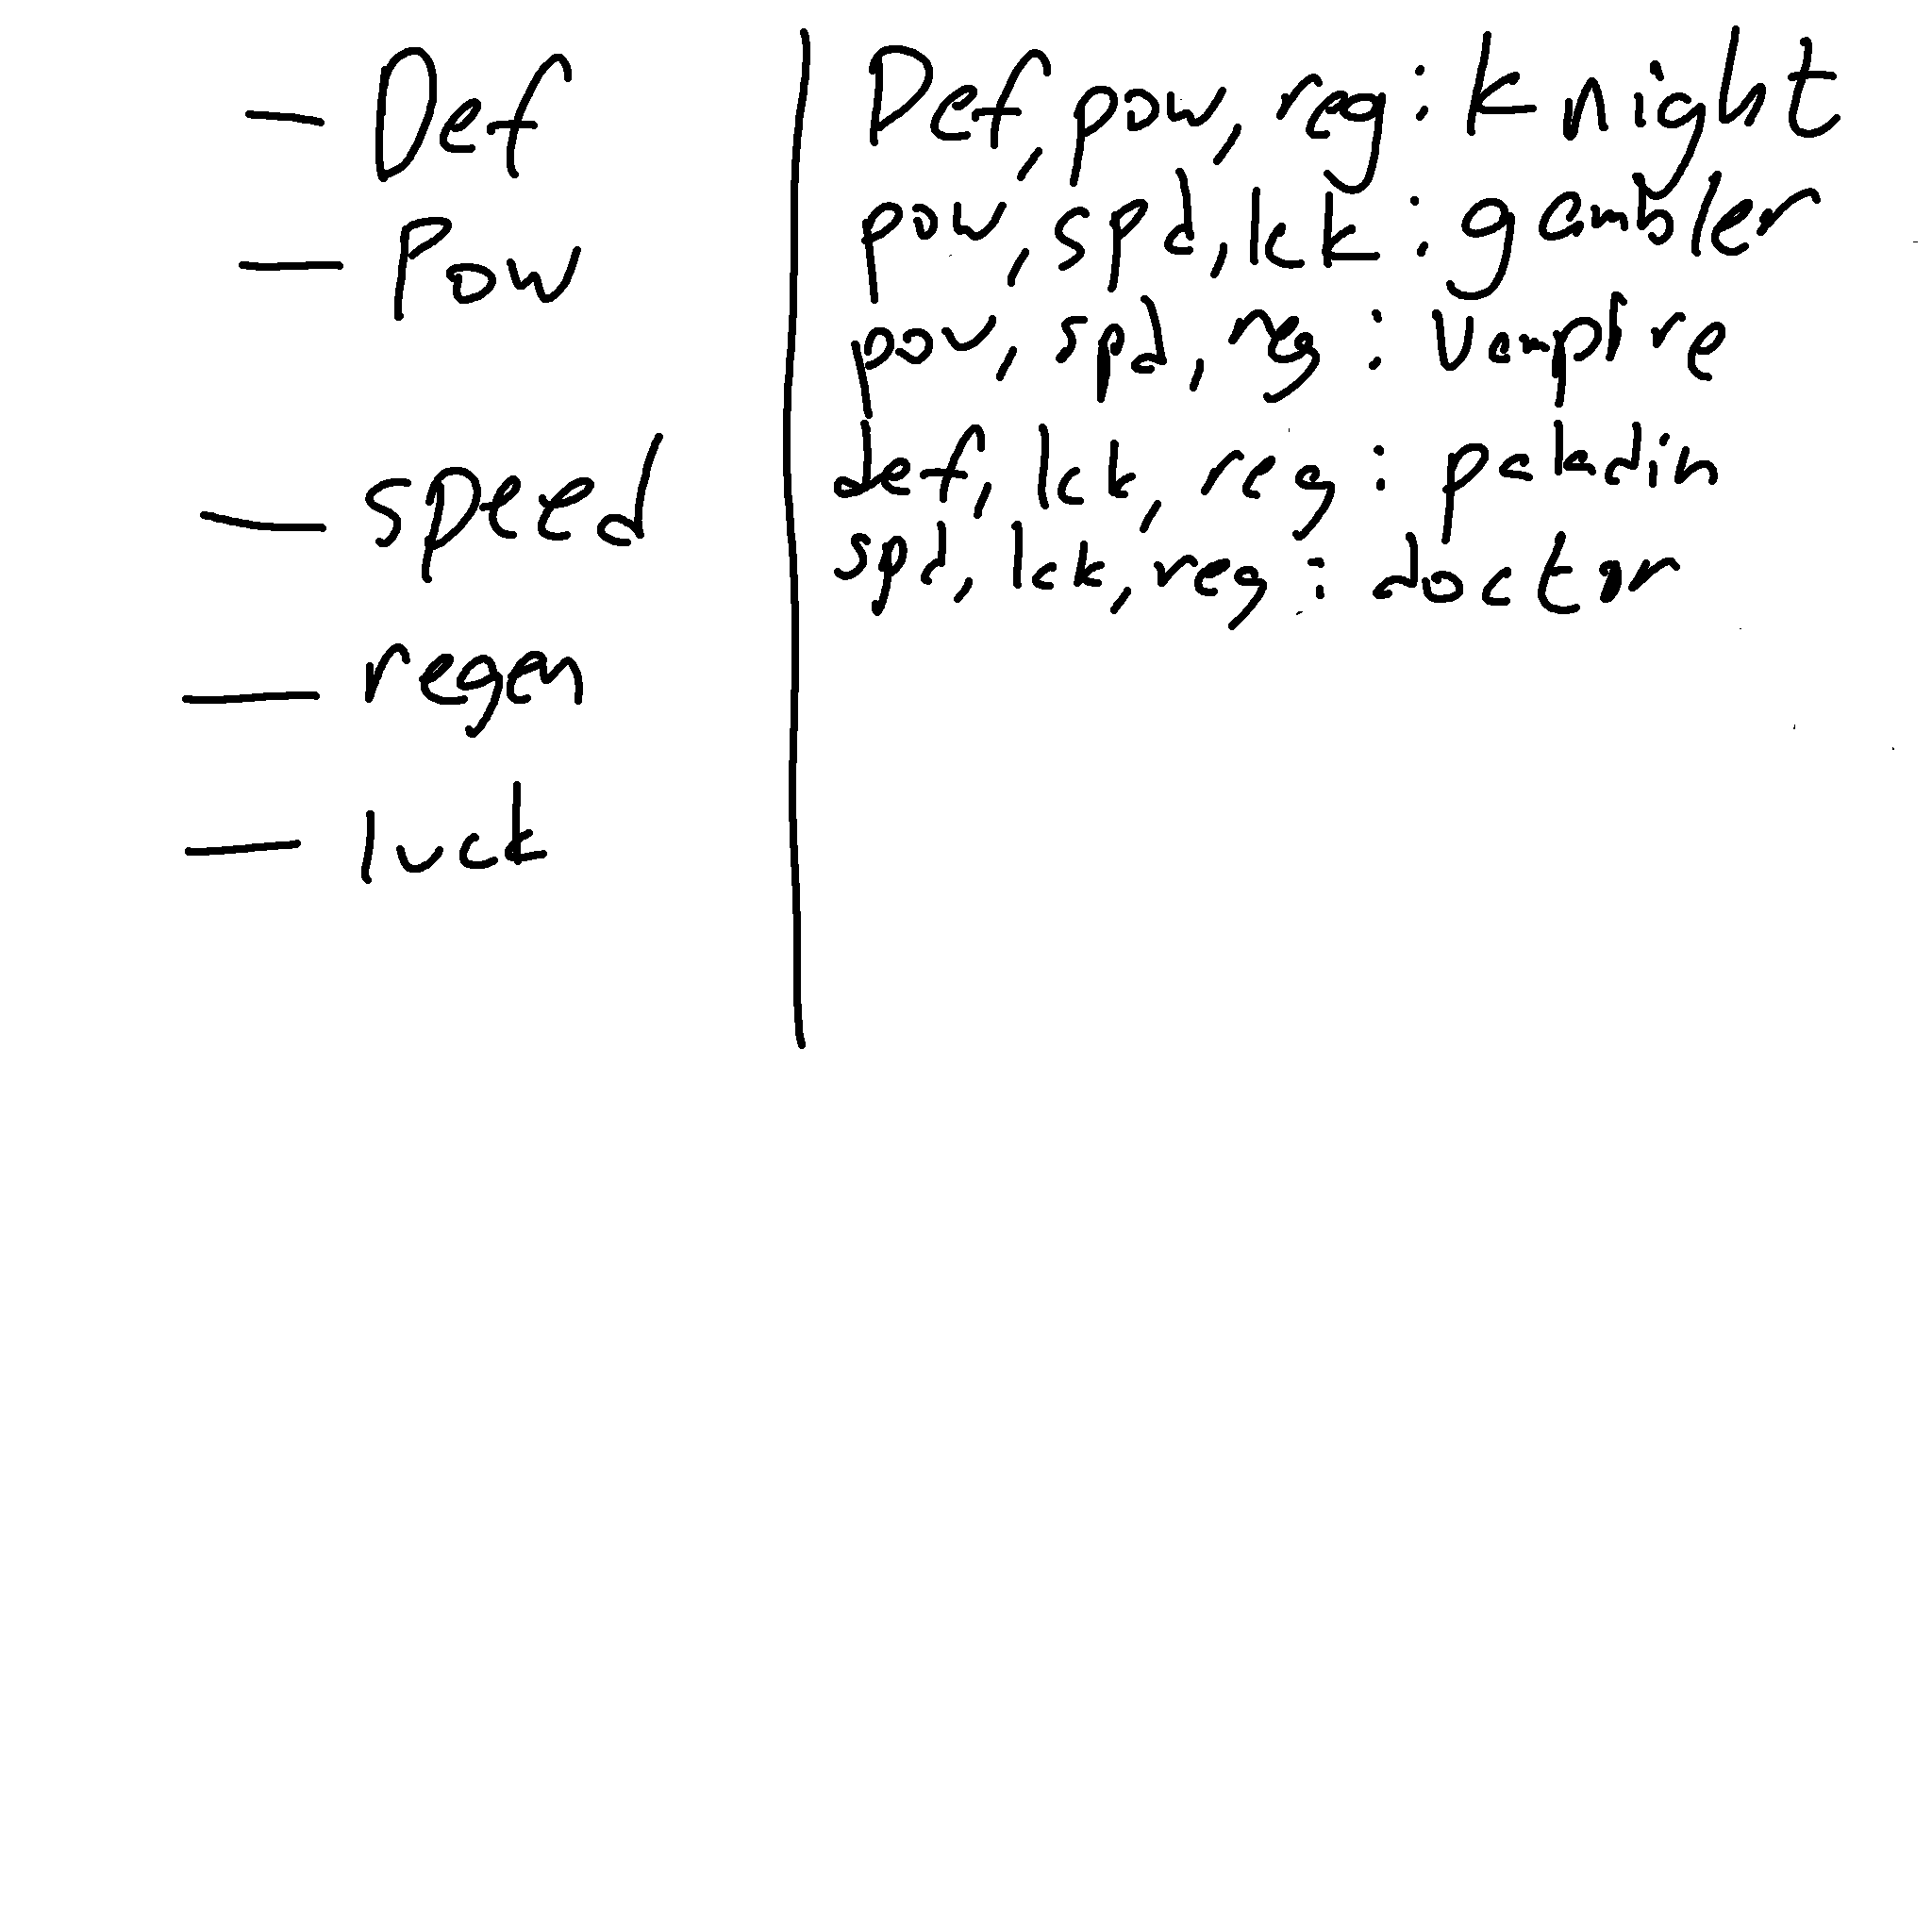 — Def
— Pow
— speed
— regen
— luck
Def, pow, reg : knight
pow, spd, lck : gambler
pow, spd, reg : Vampire
def, lck, reg : paladin
spd, lck, reg : doctor